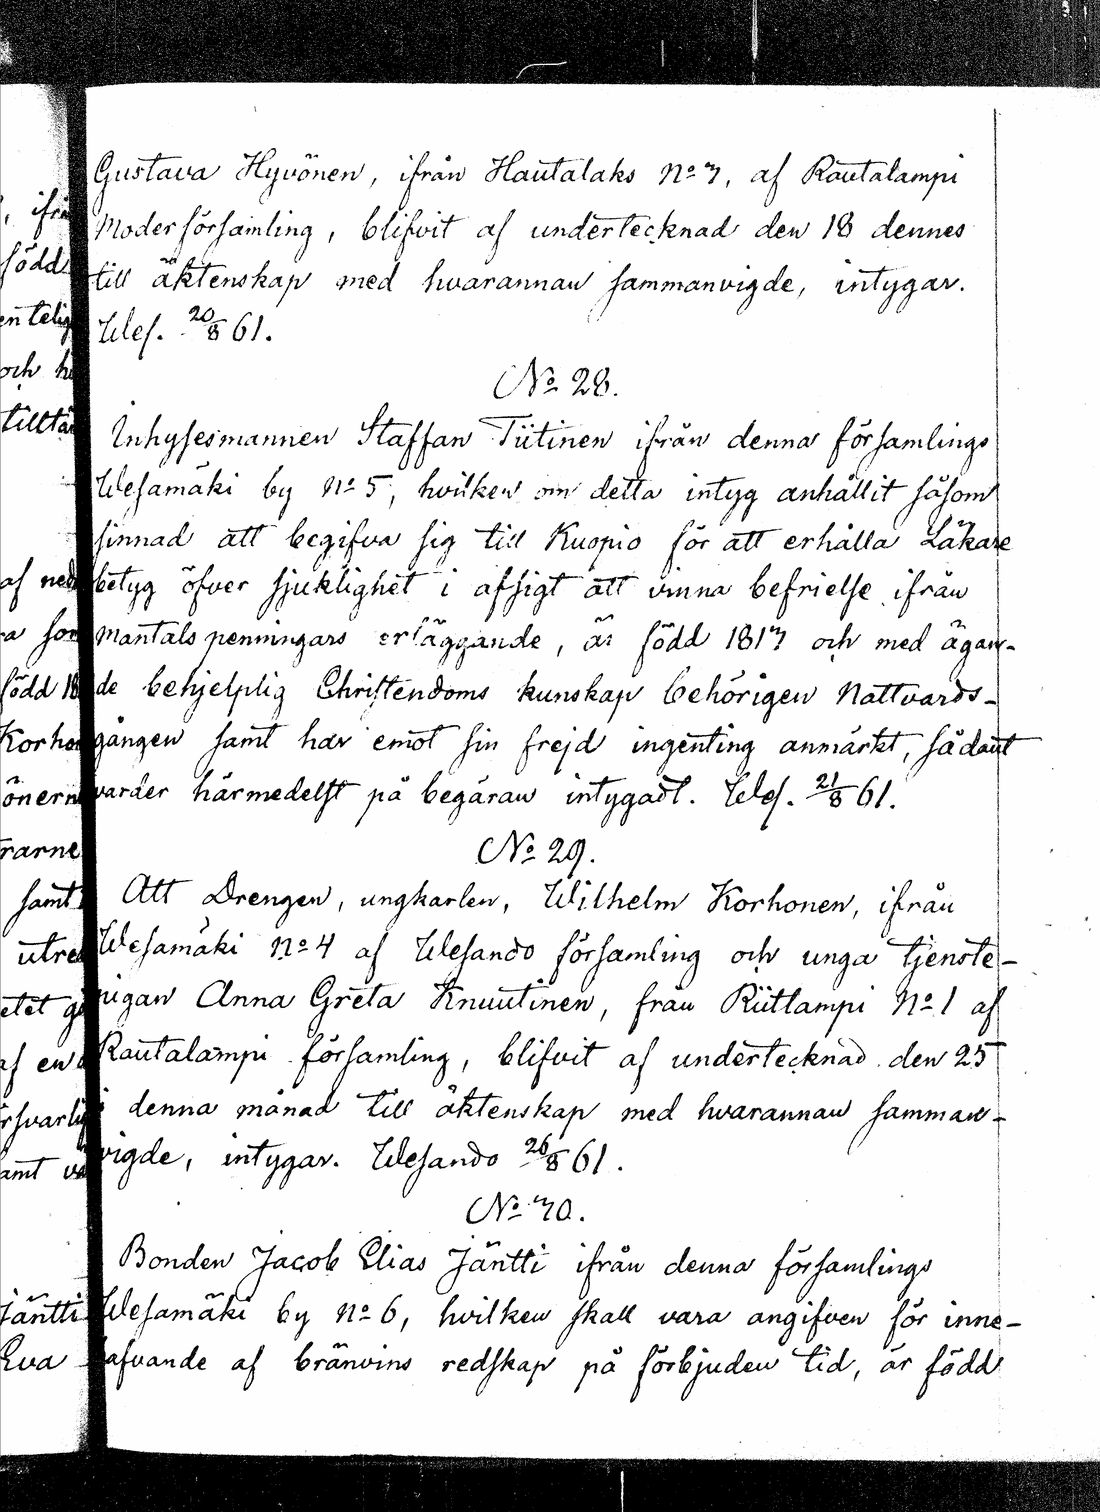 Gustava Hyvönen, ifrån Hautalaks No 7, af Rautalampi
Moderförsamling, blifvit af undertecknad den 18 dennes
till äktenskap med hvarannan sammanvigde, intygar.
Wes. 20/8 61.
No 28.
Inhysesmannen Staffan Tiitinen ifrån denna församlings
Wesamäki by No 5, hvilken om detta intyg anhållit såsom
sinnad att begifva sig till Kuopio för att erhålla Läkare
betyg öfver sjuklighet i afsigt att vinna befrielse ifrån
mantalspenningars erläggande, är född 1817 och med ägan-
de behjelplig Christendoms kunskap behörigen Nattvards-
gången samt har emot sin frejd ingenting anmärkt, sådant
varder härmedelst på begäran intygadt. Wes. 21/8 61.
No 29.
Att Drengen, ungkarlen, Wilhelm Korhonen, ifrån
Wesamäki No 4 af Wesando församling och unga tjenste-
pigan Anna Greta Knuutinen, från Riitlampi No 1 af
Rautalampi församling, blifvit af undertecknad den 25
i denna månad till äktenskap med hvarannan samman-
vigde, intygar. Wesando 26/8 61.
No 70.
Bonden Jacob Elias Jäntti ifrån denna församlings
Wesamäki by No 6, hvilken skall vara angifven för inne-
hafvande af bränvins redskap på förbjuden tid, är född